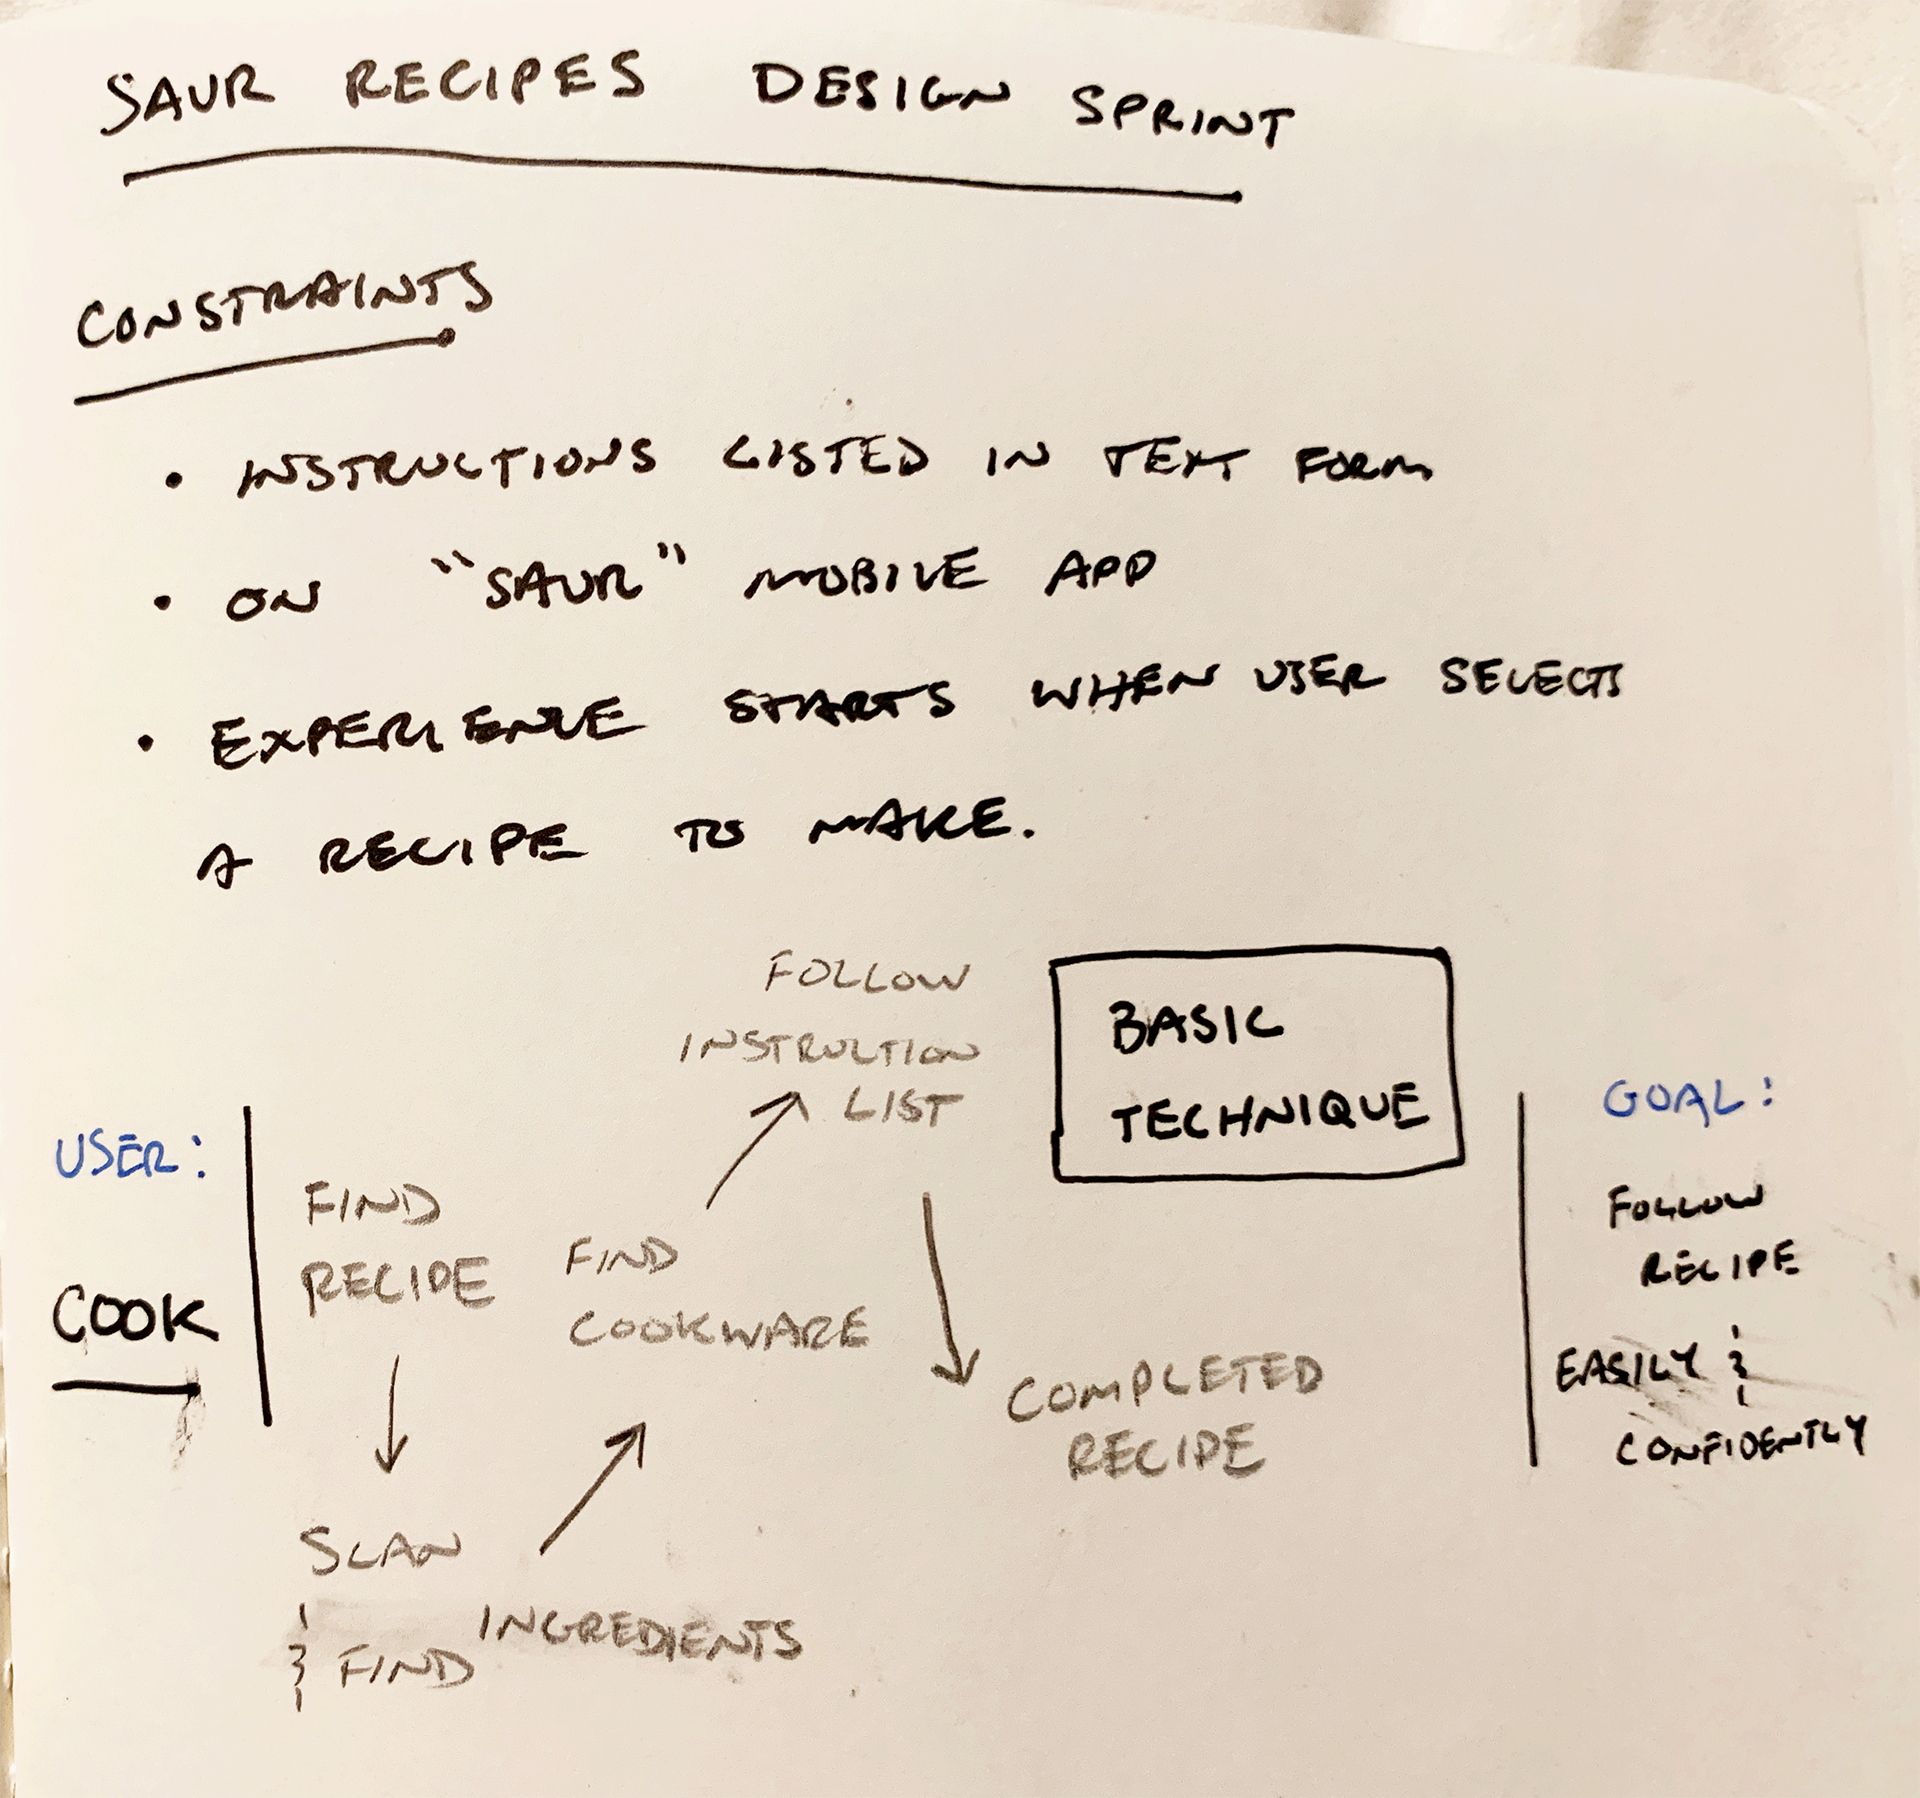 SAUR RECIPES DESIGN SPRINT
CONSTRAINTS
• INSTRUCTIONS LISTED IN TEXT FORM
• ON "SAUR" MOBILE APP
• EXPERIENCE STARTS WHEN USER SELECTS
A RECIPE TO MAKE.
USER:
COOK
FIND
RECIPE
SCAN
& FIND INGREDIENTS
FIND
COOKWARE
FOLLOW
INSTRUCTION
LIST
BASIC
TECHNIQUE
COMPLETED
RECIPE
GOAL:
FOLLOW
RECIPE
EASILY &
CONFIDENTLY